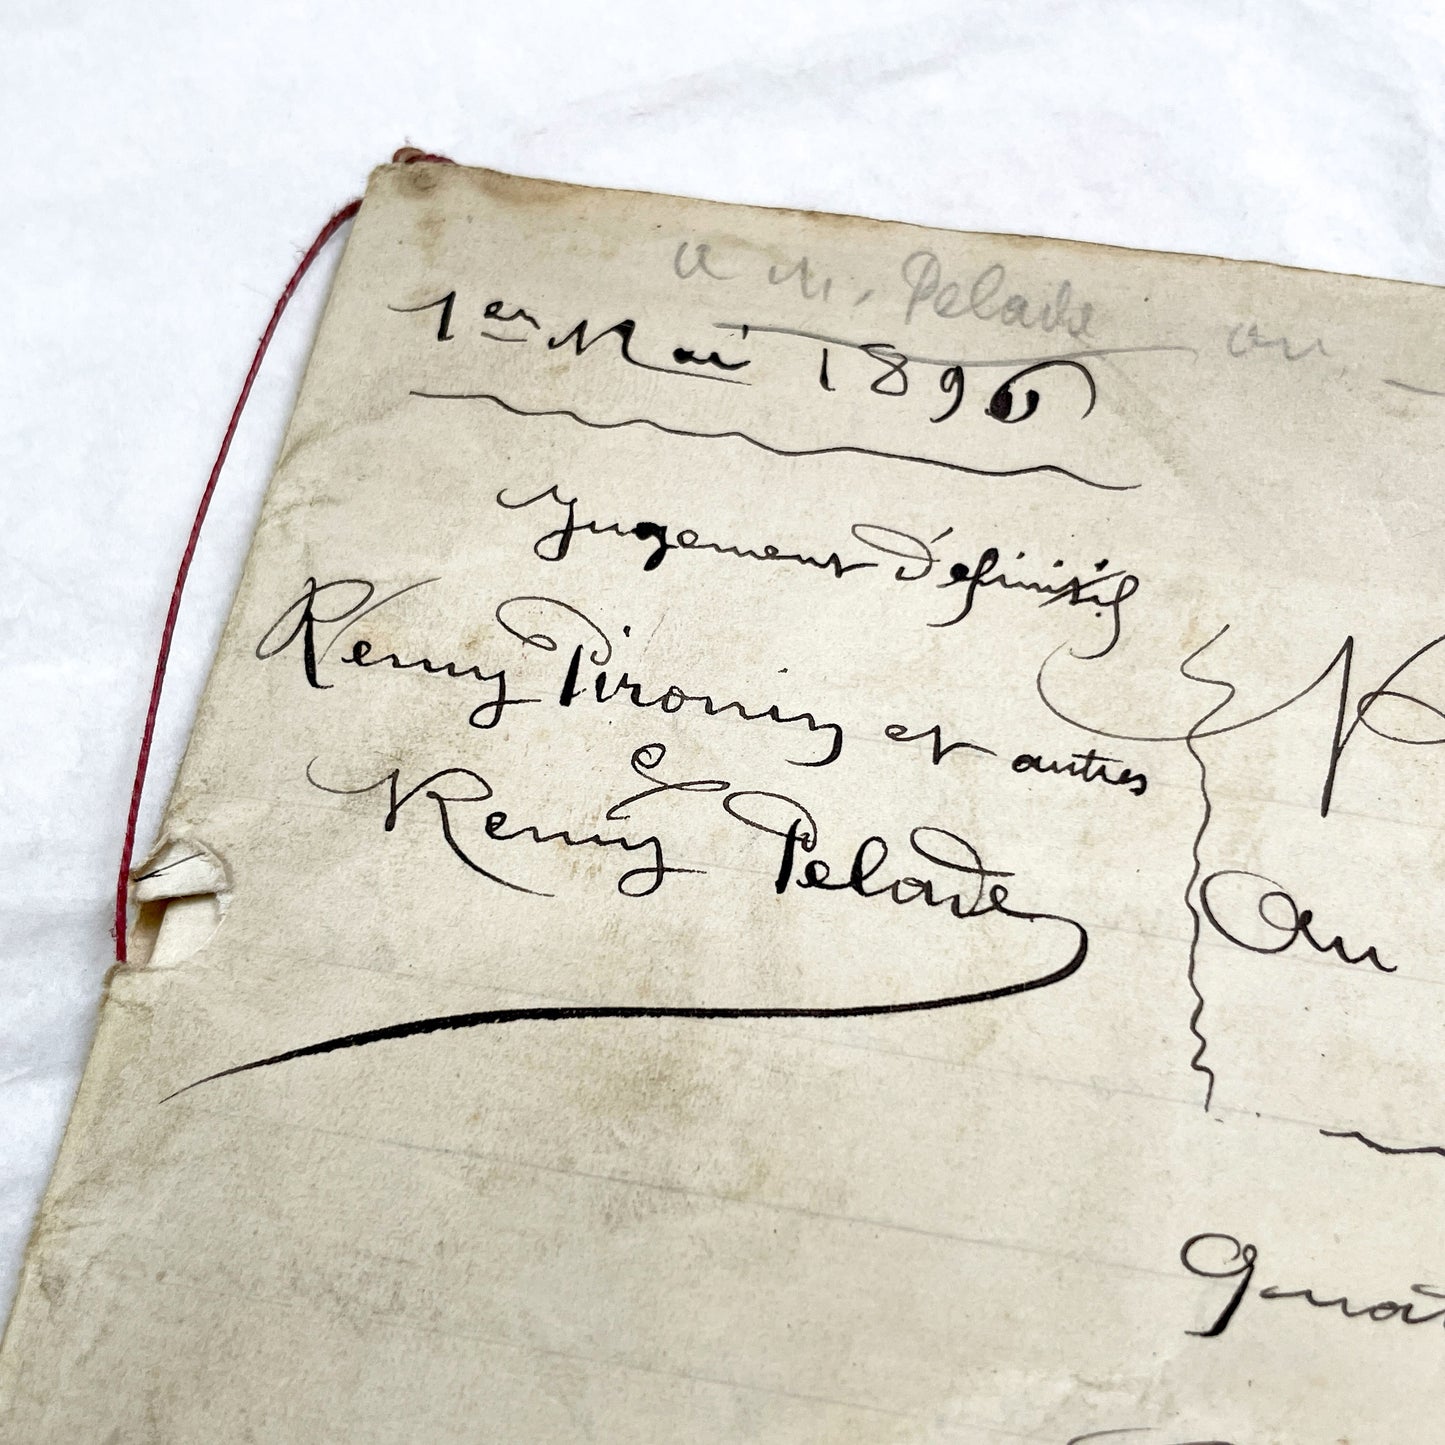 a M. Pelade
1er Mai 1896
Jugement Définitif
Remy Pironin et autres
&
Remy Pelade
Au